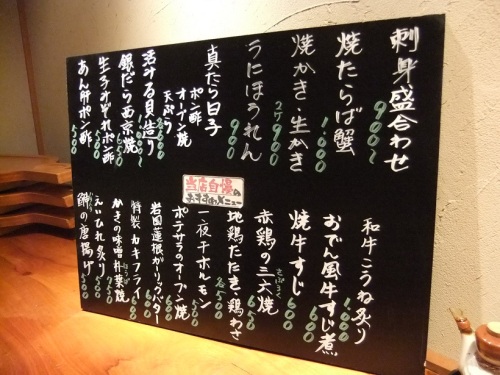 刺身盛合わせ 900〜
焼たらば蟹 1,000
焼かき・生かき 2ケ 900
うにほうれん 900
真たら白子
ポン酢
オーブン焼
天ぷら
活みる貝造り
銀だら西京焼
生子みぞれポン酢 500
あん肝ポン酢 500
当店自慢の
おすすめメニュー
和牛こうね炙り 1,000
おでん風牛すじ煮 600
焼牛すじ 600
赤鶏の三六焼 650
地鶏たたき、鶏わさ 各500
一夜干ホルモン 500
ポテサラのオーブン焼 600
岩国蓮根ガーリックバター 600
特製カキフライ 600
かきの味噌朴葉焼 750
えいひれ炙り 500
の唐揚げ 500